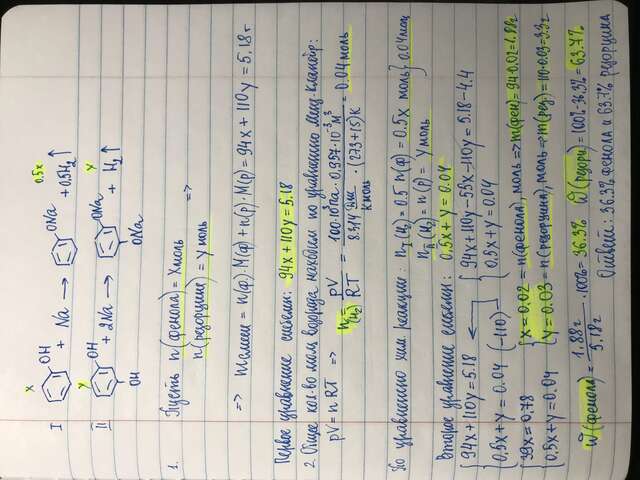 x 0.5x
I OH + Na → ONa + 0,5H₂↑
y y
II OH + 2Na → ONa + H₂↑
OH ONa
1. Пусть n(фенола) = X моль
n(резорцина) = y моль =>
=> mсмеси = n(ф.)·M(ф) + n(р)·M(р) = 94x + 110y = 5,18г
Первое уравнение системы: 94x + 110y = 5.18
2. Общее кол-во моль водорода находим по уравнению Менд-Клапейр:
pV = nRT => n(H₂) = pV/RT = 100·10³Па · 0,957·10⁻³м³ / 8.314 Дж/К моль · (273+15)К = 0.04 моль
По уравнению хим. реакции: nI(H₂) = 0.5 n(ф) = 0.5x моль } 0.04моль
nII(H₂) = n(р) = y моль
Второе уравнение системы: 0,5x + y = 0.04
{94x + 110y = 5.18 {94x + 110y - 55x - 110y = 5.18 - 4.4
0,5x + y = 0.04 (-110) 0.5x + y = 0.04
{39x = 0,78 {x = 0.02 = n(фенола), моль => m(фен) = 94·0.02 = 1.88г
0,5x + y = 0,04 y = 0.03 = n(резорцина), моль => m(рез.) = 110·0.03 = 3.3г
W(фенола) = 1.88г/5.18г · 100% = 36.3% W(резорц) = 100% - 36.3% = 63.7%
Ответ: 36.3% фенола и 63.7% резорцина